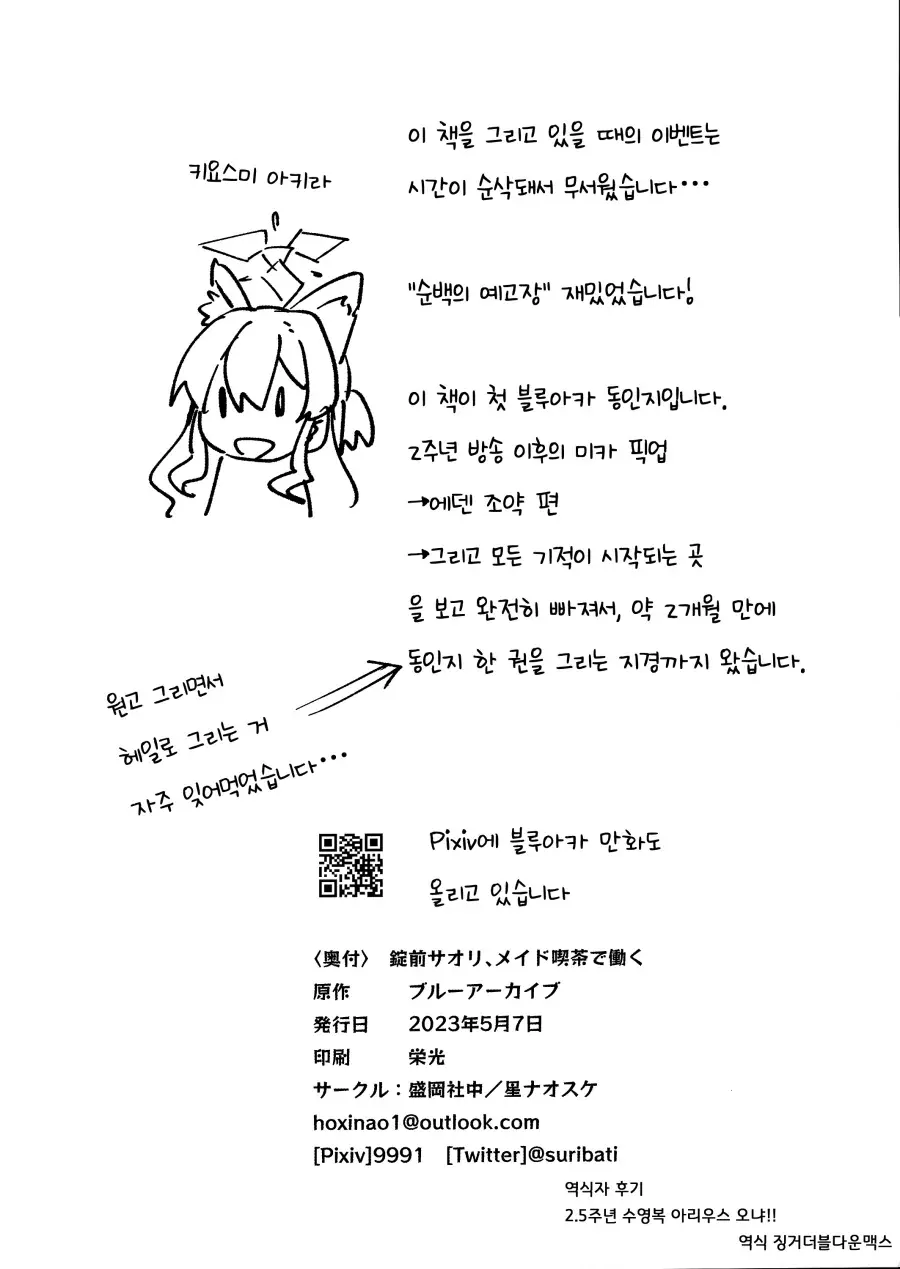 키요스미 아키라
이 책을 그리고 있을 때의 이벤트는
시간이 순삭돼서 무서웠습니다…
"순백의 예고장" 재밌었습니다!
이 책이 첫 블루아카 동인지입니다.
2주년 방송 이후의 미카 픽업
→에덴 조약 편
→그리고 모든 기적이 시작되는 곳
을 보고 완전히 빠져서, 약 2개월 만에
동인지 한 권을 그리는 지경까지 왔습니다.
원고 그리면서
헤일로 그리는 거
자주 잊어먹었습니다…
Pixiv에 블루아카 만화도
올리고 있습니다
〈奥付〉 錠前サオリ、メイド喫茶で働く
原作 ブルーアーカイブ
発行日 2023年5月7日
印刷 栄光
サークル：盛岡社中／星ナオスケ
hoxinao1@outlook.com
[Pixiv]9991 [Twitter]@suribati
역식자 후기
2.5주년 수영복 아리우스 오냐!!
역식 징거더블다운맥스